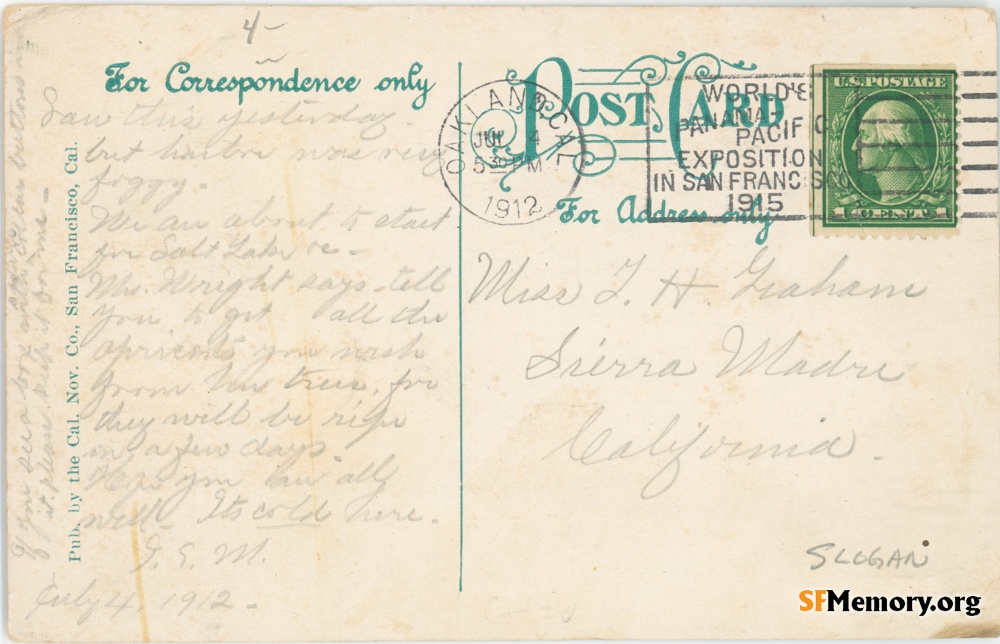 4-
For Correspondence only
POST CARD
For Address only
OAKLAND, CAL.
JUL 4
5 30 PM
1912
WORLD'S
PANAMA
PACIFIC
EXPOSITION
IN SAN FRANCISCO
1915
U.S. POSTAGE
1 CENT 1
Saw this yesterday.
but harbor was very
foggy.
We are about to start
for Salt Lake
Mr. Wright says tell
you to get all the
apricots you wish
from his trees, for
they will be ripe
in a few days.
Hope you are all
well. Its cold here.
July 4, 1912.
If you see a box
it, please keep it for me.
Pub. by the Cal. Nov. Co., San Francisco, Cal.
Miss L. H. Graham
Sierra Madre
California.
SLOGAN
SFMemory.org